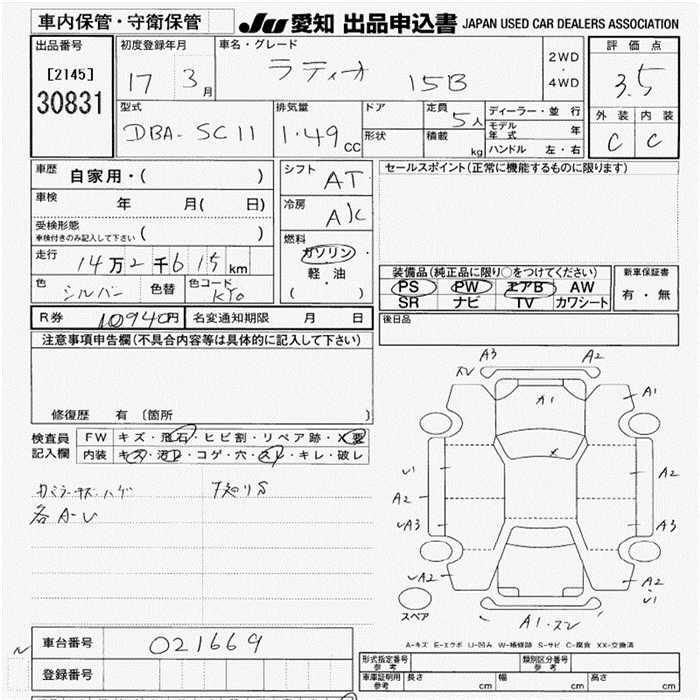 車内保管・守衛保管
JU 愛知 出品申込書 JAPAN USED CAR DEALERS ASSOCIATION
出品番号
[2145]
30831
初度登録年月
17 3月
車名・グレード
ラティオ 15B
2WD
・
4WD
評価点
3.5
外装 内装
C C
型式
DBA-SC11
排気量
1.49cc
ドア
形状
定員
5人
積載
kg
ディーラー・並行
モデル年式 年
ハンドル 左・右
車歴
自家用・( )
車検
年 月( 日)
受検形態
車検付きのみ記入して下さい ( )
走行
14万2千615km
色
シルバー
色替
色コード
KY0
シフト
AT
冷房
A/C
燃料
ガソリン・
軽・油
( )
セールスポイント(正常に機能するものに限ります)
装備品(純正品に限り○をつけてください)
PS PW エアB AW
SR ナビ TV カワシート
新車保証書
有・無
後日品
R券
10940円
名変通知期限 月 日
注意事項申告欄(不具合内容等は具体的に記入して下さい)
修復歴 有 〔箇所 〕
検査員
記入欄
FW キズ・飛石・ヒビ割・リペア跡・X要
内装 キズ・汚レ・コゲ・穴・スレ・キレ・破レ
各A-U
A3 A2
A1
A1
U1
A2
A2
A3
A3
A2
A2
U1
スペア
A1・
A-キズ E-エクボ U-凹み W-補修跡 S-サビ C-腐食 XX-交換済
車台番号
021669
登録番号
形式指定番号
参考
類別区分番号
参考
車庫証明用
参考
長さ cm
幅 cm
高さ cm